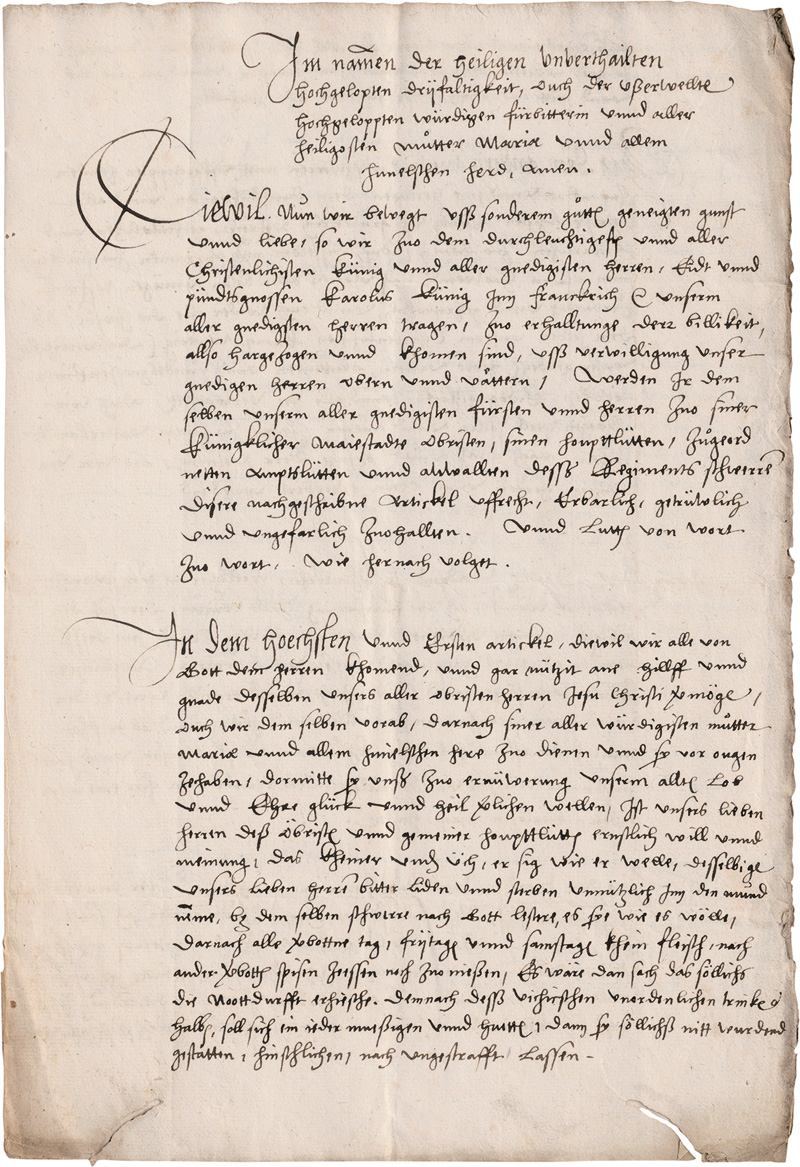 Im namen der heiligen unverthailten
hochgelopten dryfaltigkeit, ouch der ußerwellte
hochgeloppten würdigen fürbitterin unnd aller
heiligosten můtter Maria unnd allem
himelschen herd, amen.
Diewil. Nůn wir bewegt usß sonderem gůtte geneigten gunst
unnd liebe, so wir zuo dem durchleuchtigesten unnd aller
Christenlichisten Künig unnd aller gnedigisten herren, Eidt unnd
pündtsgnossen Karolus Künig Inn Franckrich unserm
aller gnedigsten herren tragen, zuo erhalltunge derr billikeit,
allso hargezogen unnd khomen sind, usß verwilligung unser
gnedigen herren obern unnd våttern, Werden Ir dem
selben unserm aller gnedigisten fürsten unnd herren zuo siner
Künigklicher Maiestadte Obristen, sinen houpttlütten, zůgeord
netten Amptslütten unnd Anwallten desß Regiments schwerre
disere nachgeschribne Artickel uffrecht, Erbarlich, getrüwlich
unnd ungefarlich zuohallten. Unnd Lutte von wort
zuo wort, wie hernach volget.
In dem hoechsten unnd Ersten artickel, diewil wir alle von
Gott dem herren khomend, unnd gar nützit ane hillff unnd
gnade desselben unsers aller obristen herren Jesu Christi vermöge,
ouch wir dem selben vorab, darnach siner aller würdigisten můtter
Maria unnd allem himelschen here zuo dienen unnd sy vor ougen
zehaben, dormitte sy unsß zuo ernüwerung unserm allte Lob
unnd Ehre glück unnd heil verlichen wellen, Ist unsers lieben
herren deß Obriste unnd gemeiner houpttlütte ernstlich will unnd
meinung, das kheiner under üch, er sig wie er welle, desselbige
unsers lieben herre bitter liden unnd sterben unnützlich Inn den mund
neme, by dem selben schwerre nach Gott lestere, es sye wie es wölle,
darnach alle verbottne tag, frytage unnd samstage khein fleisch, nach
ander verbotte spisen zeessen noch zuo nießen, Es wäre dan sach das söllichs
die Noottdurfft erhiesche. Demnach desß vichischen unordenlichen trinkes
halbe, soll sich ein ieder mueßigen unnd hütte, dann sy söllichß nitt wurdend
gestatten, hinschlichen, nach ungestrafft Lassen.